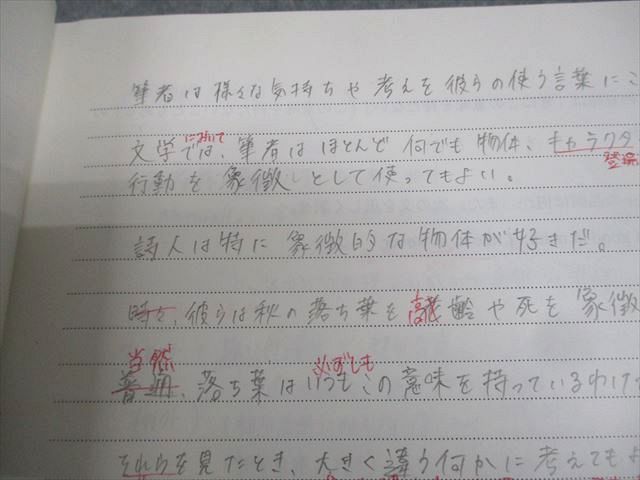 筆者は様々な気持ちや考えを彼らの使う言葉にこ
において
文学では、筆者はほとんど何でも物体、キャラクタ
登場
行動を象徴として使ってもよい。
詩人は特に象徴的な物体が好きだ。
時々、彼らは秋の落ち葉を高齢や死を象徴
当然 必ずしも
普通、落ち葉はいつもこの意味を持っているわけで
それらを見たとき、大きく違う何かに考えてもよ